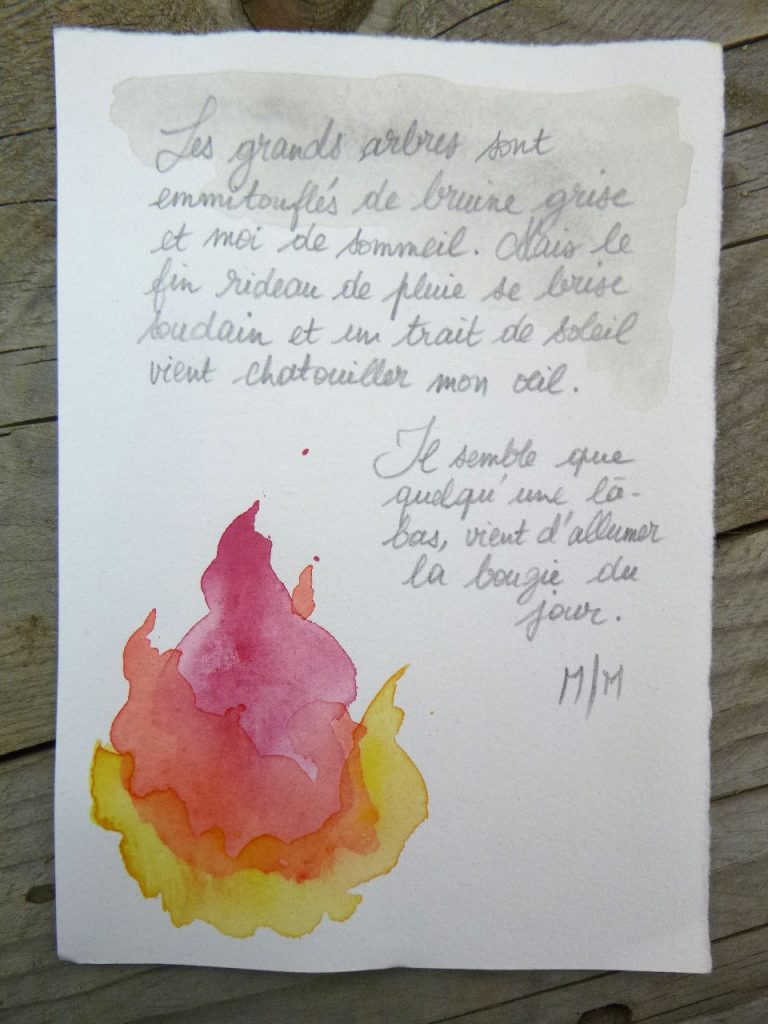 Les grands arbres sont
emmitouflés de bruine grise
et moi de sommeil. Mais le
fin rideau de pluie se brise
soudain et un trait de soleil
vient chatouiller mon œil.
Il semble que
quelqu'une là-
bas, vient d'allumer
la bougie du
jour.
M/M